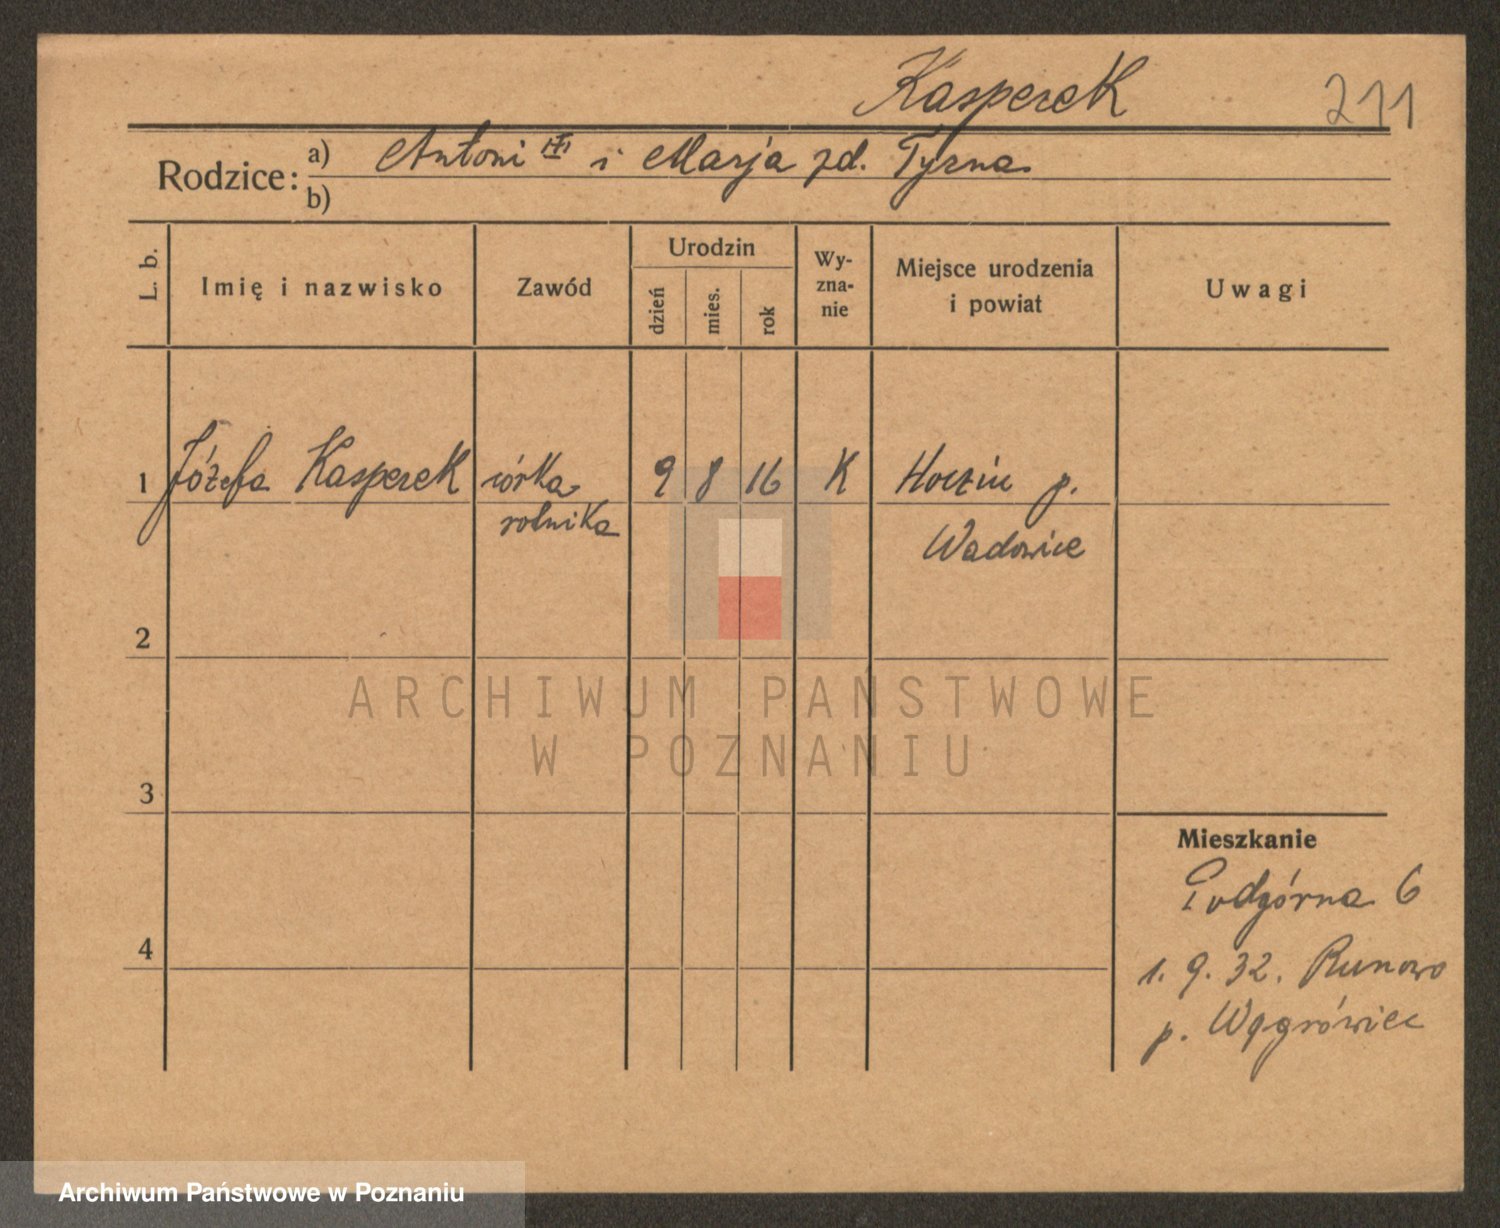 Kasperek 211
Rodzice: a) Antoni III i Marja zd. Tyrna
b)
L. b. Imię i nazwisko Zawód Urodzin dzień mies. rok Wy-zna-nie Miejsce urodzenia i powiat Uwagi
1 Józefa Kasperek córka 9 8 16 K p.
rolnika Wadowice
2
ARCHIWUM PAŃSTWOWE
W POZNANIU
3
Mieszkanie
Podgórna 6
4
1. 9. 32. Runowo
p. Wągrówiec
Archiwum Państwowe w Poznaniu